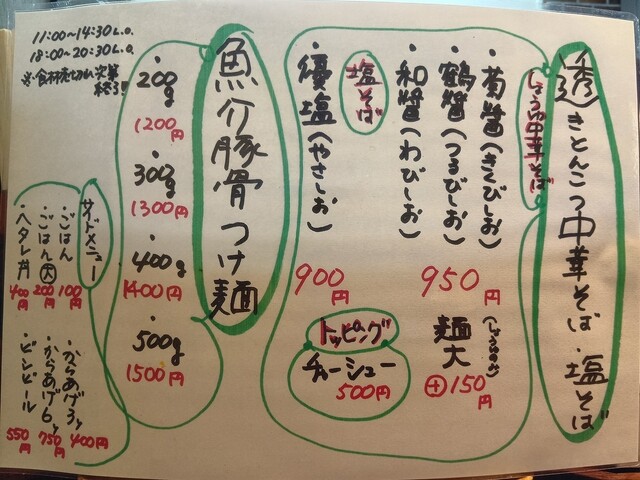 秀 透きとんこつ中華そば・塩そば
しょうゆ中華そば
・菊醤(きくびしお)
・鶴醤(つるびしお)
・和醤(わびしお)
950円
(しょうゆのみ)
麺大
⊕150円
塩そば
・優塩(やさしお)
900円
トッピング
チャーシュー
500円
魚介豚骨つけ麺
・200g
1200円
・300g
1300円
・400g
1400円
・500g
1500円
11:00~14:30L.O.
18:00~20:30L.O.
※食材売切れ次第
終了!!
サイドメニュー
・ごはん
100円
・ごはん大
200円
・ヘタレ丼
400円
・からあげ3ヶ
400円
・からあげ6ヶ
750円
・ビンビール
550円